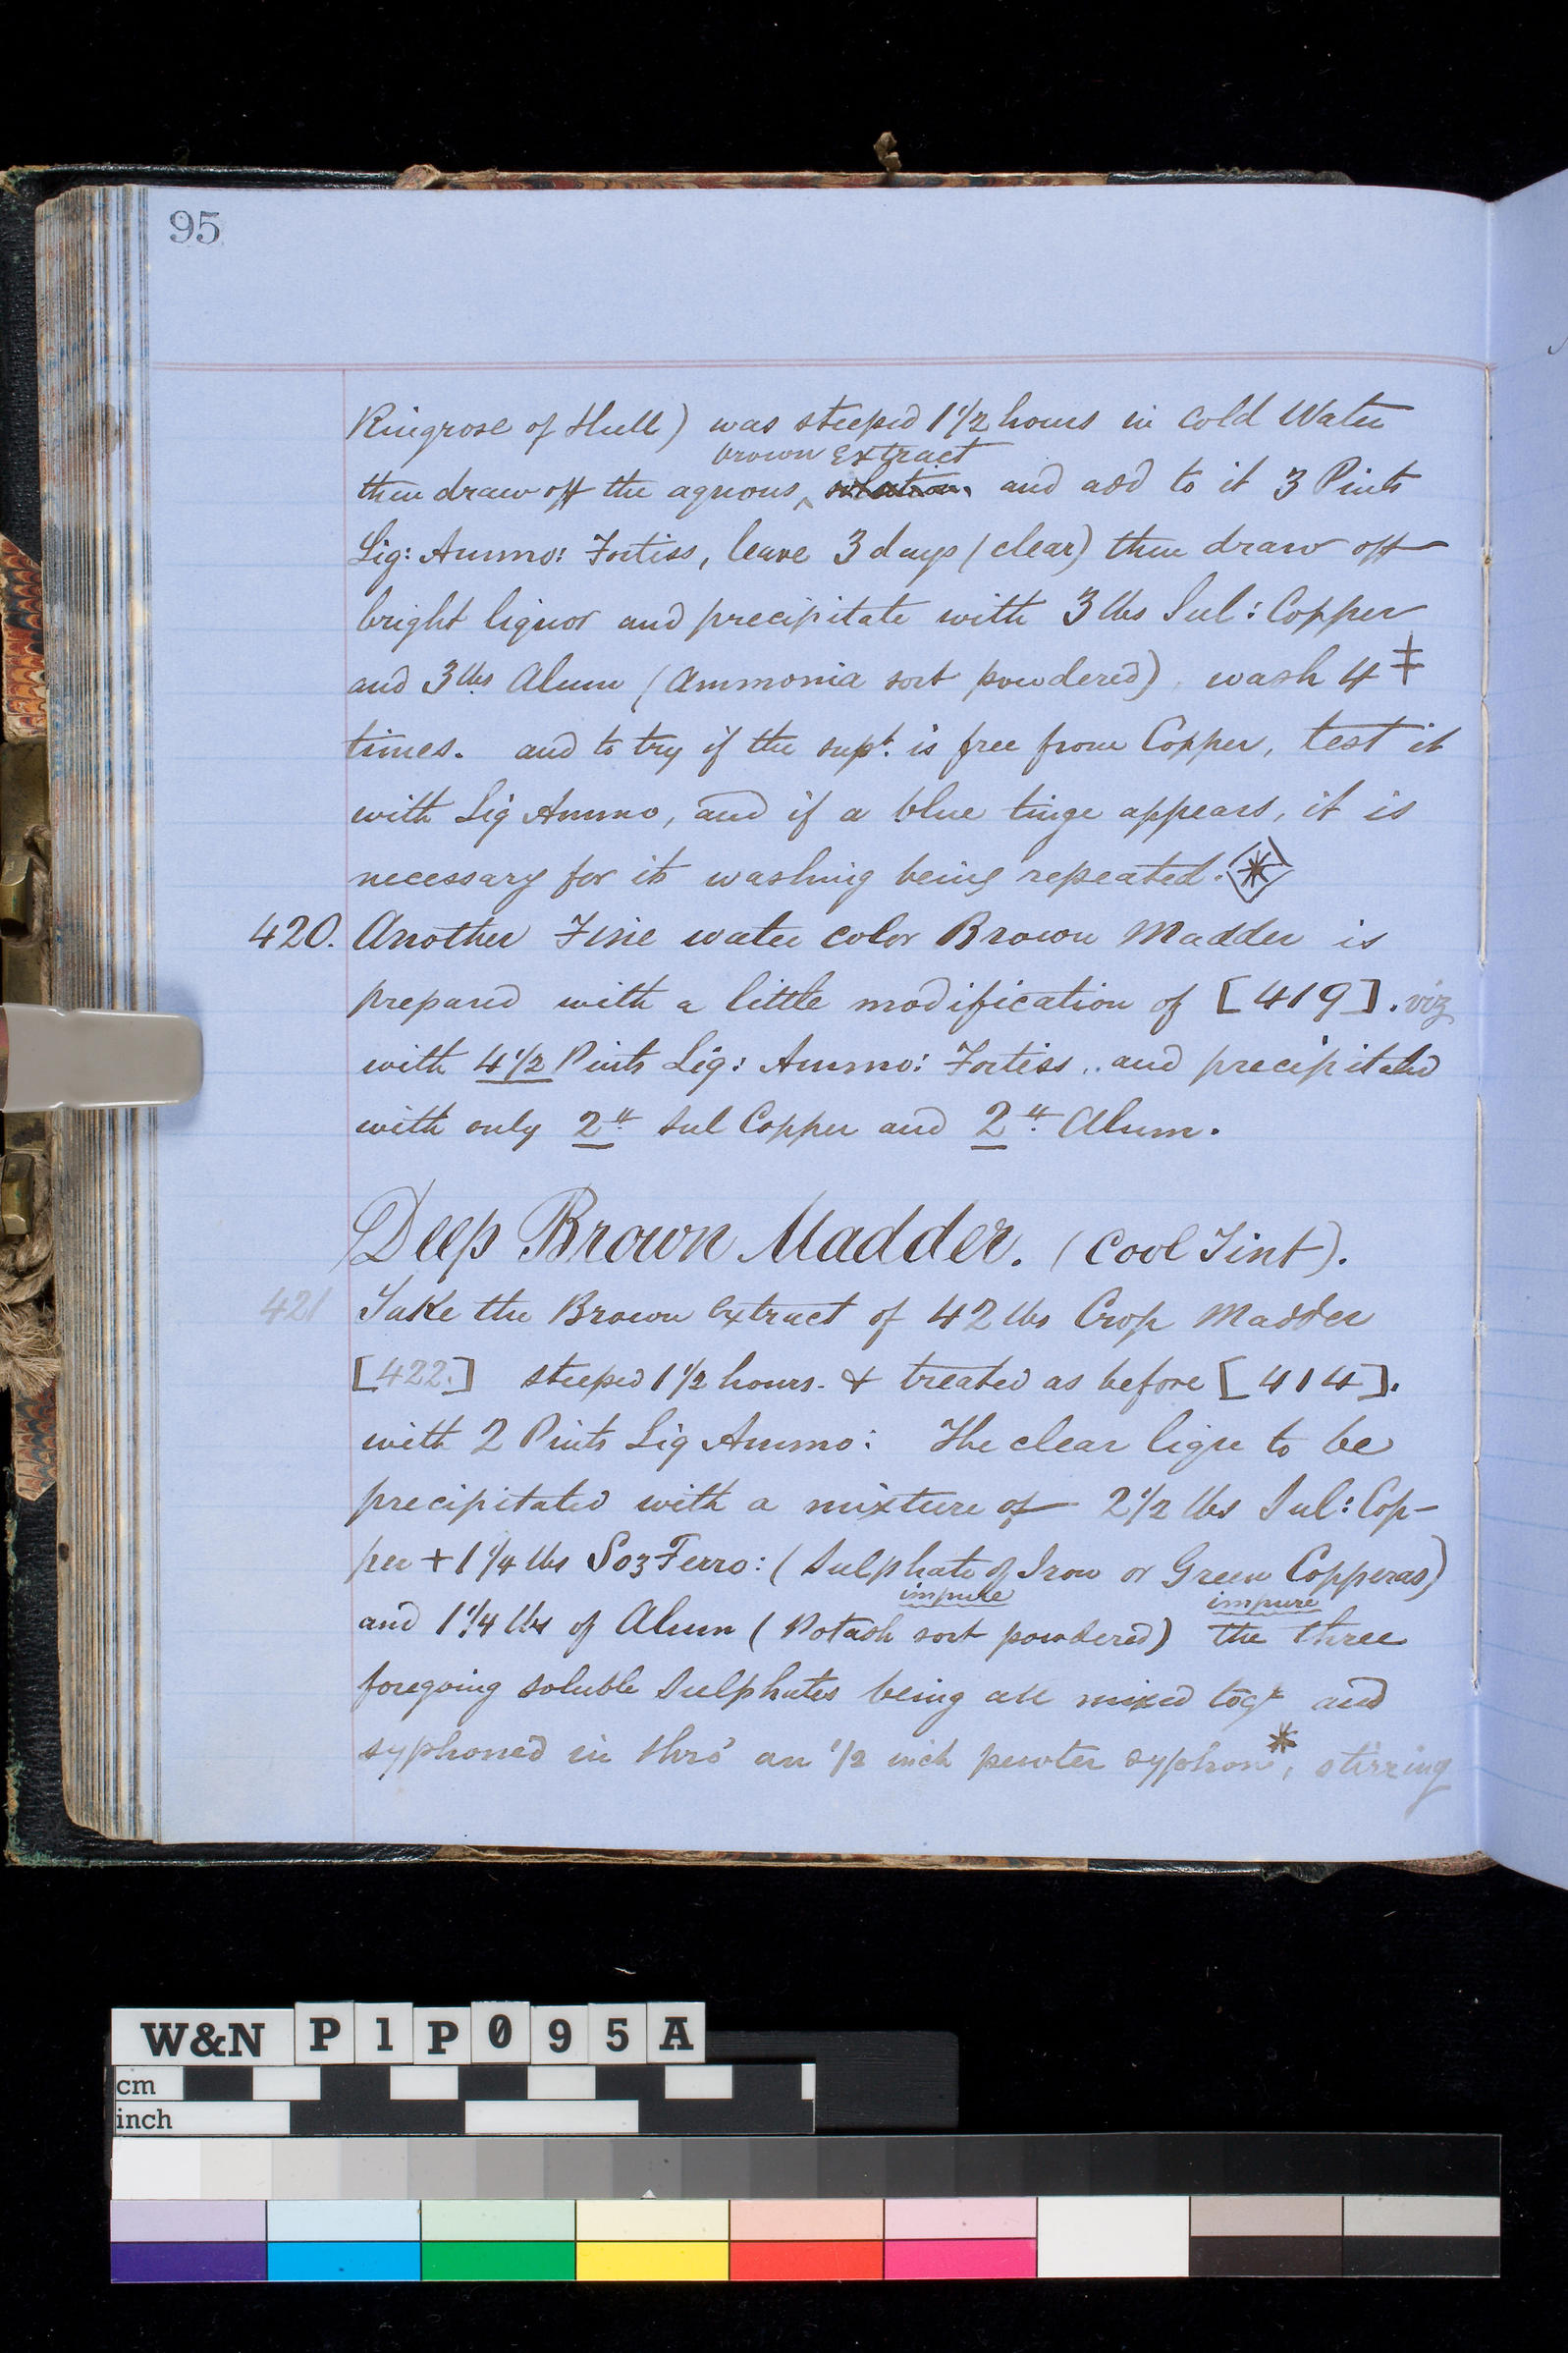 95
Ringrose of Hull) was steeped 1 1/2 hours in cold Water
brown Extract
then draw off the aqueous ^ solution. and add to it 3 Pints
Liq: Ammo: Fortiss, leave 3 days (clear) then draw off
bright liquor and precipitate with 3 lbs Sul: Copper
and 3 lbs Alum (Ammonia sort powdered). wash 4 ‡
times. and to try if the supt. is free from Copper, test it
with Liq Ammo, and if a blue tinge appears, it is
necessary for its washing being repeated. *
420. Another Fine water color Brown Madder is
prepared with a little modification of [419]. viz
with 4 1/2 Pints Liq: Ammo: Fortiss.. and precipitated
with only 2 " Sul Copper and 2 " Alum.
Deep Brown Madder. (Cool Tint).
421 Take the Brown extract of 42 lbs Crop Madder
[422.] steeped 1 1/2 hours. & treated as before [414].
with 2 Pints Liq Ammo: The clear liqr to be
precipitated with a mixture of 2 1/2 lbs Sul: Cop-
per + 1 1/4 lbs So3 Ferro: (Sulphate of Iron or Green Copperas)
impure impure
and 1 1/4 lbs of Alum (Potash sort powdered) the three
foregoing soluble Sulphates being all mixed togr and
syphoned in thro' an 1/2 inch pewter syphon*, stirring
W&N P1P095A
cm
inch